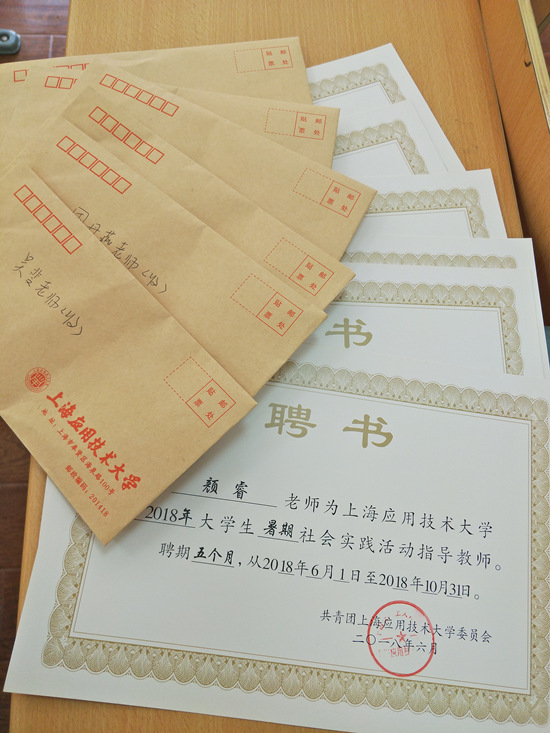 贴 邮
票 处
贴 邮
票 处
贴 邮
票 处
贴 邮
票 处
贴 邮
票 处
老师(收)
老师(收)
上海应用技术大学
地址：上海市奉贤区海泉路100号
邮政编码：201418
书
聘 书
颜睿 老师为上海应用技术大学
2018年大学生暑期社会实践活动指导教师。
聘期五个月，从2018年6月1日至2018年10月31日。
共青团上海应用技术大学委员会
二〇一八年六月